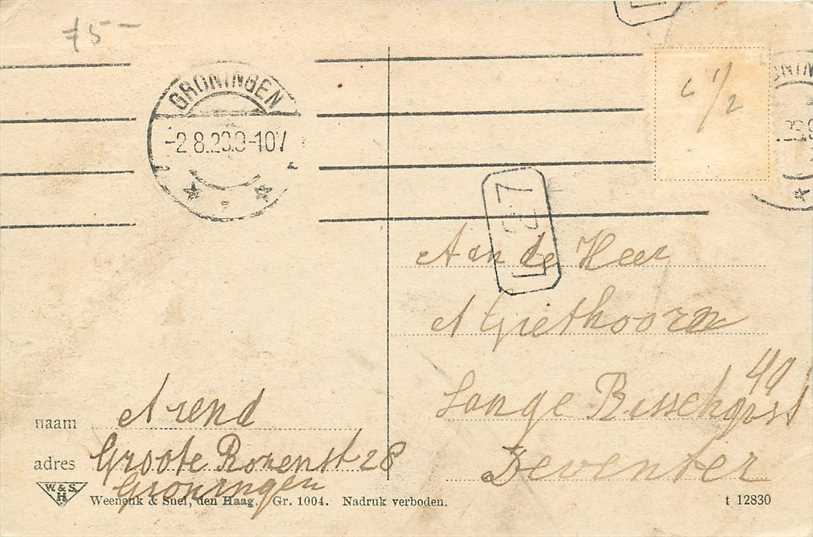 75-
GRONINGEN
-2 8.29.9-10V
L 1/2
Aan de Heer
A Giethoorn
Lange Bisschopst
40
Deventer
naam Arend
adres Groote Rozenst 28
Groningen
W.&S. H
Weenenk & Snel, den Haag. Gr. 1004. Nadruk verboden.
t 12830